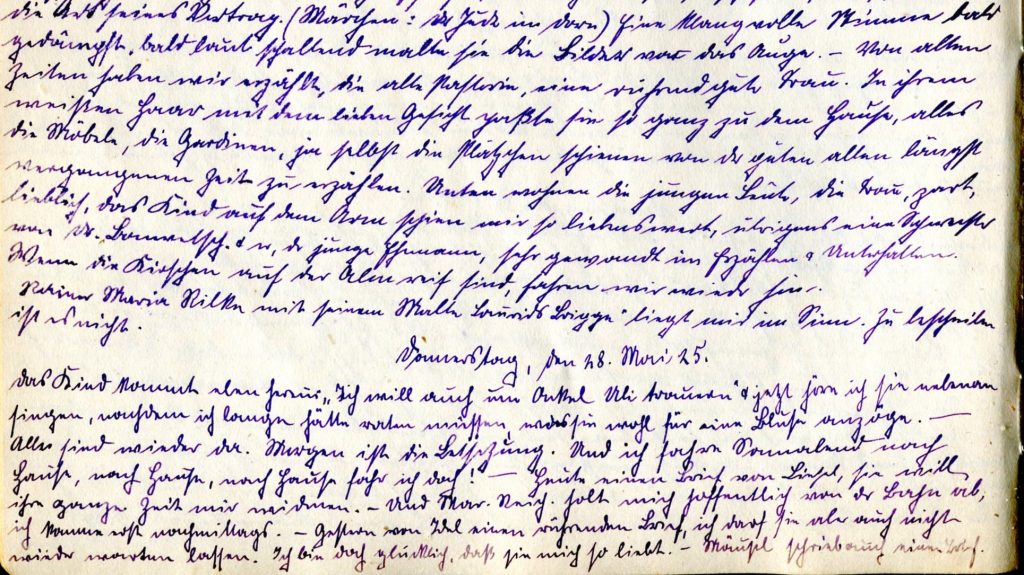 die Art seines Vertrag. (Märchen: der Jude im Dorn) Eine klangvolle Stimme bald
gedämpft, bald laut schallend malte sie die Bilder vor das Auge. – Von alten
Zeiten haben wir erzählt, die alte Pastorin, eine rührend gute Frau. In ihrem
weißen Haar mit dem lieben Gesicht paßte sie so ganz zu dem Hause, alles
die Möbele, die Gardinen, ja selbst die Plätzchen schienen von der guten alten längst
vergangenen Zeit zu erzählen. Unten wohnen die jungen Leute, die Frau, zart,
lieblich, das Kind auf dem Arm schien mir so liebenswert, übrigens eine Schwester
von Dr. Bonwetsch. & er, der junge Ehmann, sehr gewandt im Erzählen & Unterhalten.
Wenn die Kirschen auf der Alm reif sind, fahren wir wieder hin.
Rainer Maria Rilke mit seinem Malte Laurids Brigge" liegt mir im Sinn. Zu beschreiben
ist es nicht.
Donnerstag, den 28. Mai 25.
Das Kind kommt eben herein „Ich will auch um Onkel Uli trauern" & jetzt höre ich sie nebenan
singen, nachdem ich lange hätte raten müssen, was sie wohl für eine Bluse anzöge. –
Alle sind wieder da. Morgen ist die Beisetzung. Und ich fahre Sonnabend nach
Hause, nach Hause, nach Hause fahr ich doch! – Heute einen Brief von Liesel, sie will
ihre ganze Zeit mir widmen. – Und Mar. Reich. holt mich hoffentlich von der Bahn ab,
ich komme erst nachmittags. – Gestern von Idel einen rührenden Brief, ich darf sie aber auch nicht
wieder warten lassen. Ich bin doch glücklich, daß sie mich so liebt. – Mäusel schrieb auch einen Brief.